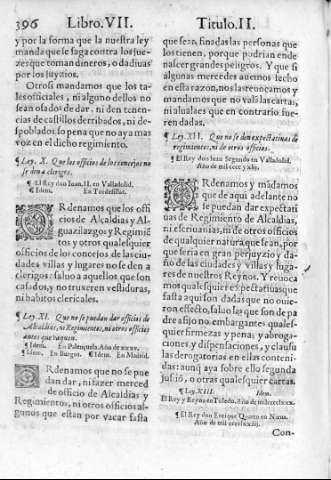 396 Libro.VII.
y por la forma que la nuestra ley
manda que se faga contra los jue-
zes que toman dineros, o dadiuas
por los juyzios.
Otrosi mandamos que los ta-
les officiales, ni alguno dellos no
sean osados de dar. ni den tenen-
cias de castillos derribados, ni de-
poblados so pena que no aya mas
voz en el dicho regimiento.
¶ Ley. X. Que los officios de los concejos no
se den a clerigos.
¶ El Rey don Iuan. II. en Valladolid.
¶ Idem. En Tordesillas.
ORdenamos que los offi
cios de Alcaldias y Al-
guazilazgos y Regimiẽ
tos y otros qualesquier
officios de los concejos de las ciu-
dades villas y lugares no se den a
clerigos: saluo a aquellos que son
casados, y no truxeren vestiduras,
ni habitos clericales.
¶ Ley. XI. Que no se puedan dar officios de
Alcaldias, ni Regimientos, ni otros officios
antes que vaquen.
¶ Idem. En Burgos. ¶ Idem. En Madrid.
ORdenamos que no se pue
dan dar, ni fazer merced
de officio de Alcaldias y
Regimientos, ni otros officios al-
gunos que estan por vacar fasta
Titulo.II.
que sean finadas las personas que
los tienen, porque podrian ende
nascer grandes peligros. Y que si
algunas mercedes auemos fecho
en esta razon, nos las reuocamos y
mandamos que no vala las cartas,
ni alualaes que en contrario fue-
ren dadas.
¶ Ley. XII. Que no se den expectatiuas de
regimientos, ni de otros officios.
¶ El Rey don Iuan Segundo en Valladolid.
ORdenamos y mãdamos
que de aqui adelante no
se puedan dar expectati
uas de Regimiento de Alcaldias,
ni escriuanias, ni de otros officios
de qualquier natura que sean, por
que seria en gran perjuyzio y da-
ño de las ciudades y villas y luga-
res de nuestros Reynos. Y reuoca
mos qualesquier expectatiuas que
fasta aqui son dadas que no ouie-
ron effecto, saluo las que son de pa
dre a fijo no embargantes quales-
quier firmezas y penas y abroga-
ciones, y dispensaciones, y clausu
las derogatorias en ellas conteni-
das: aunque aya sobre ello segunda
jussiõ, o otras qualesquier cartas.
¶ Ley. XIII. Idem.
El Rey y Reyna en Toledo.
¶ El Rey don Enrique Quarto en Nieua.
Con-